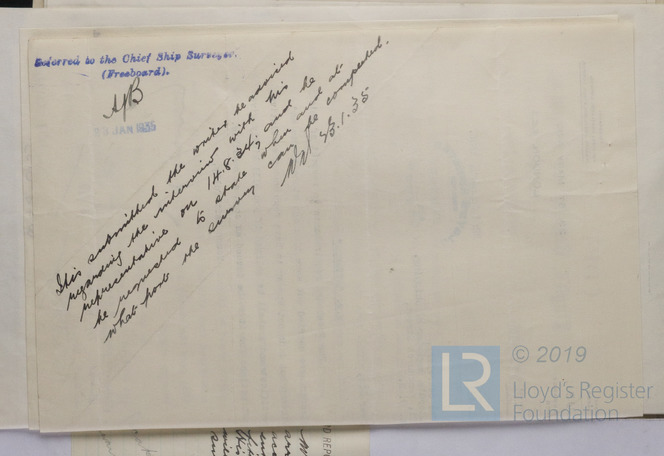 Referred to the Chief Ship Surveyor.
(Freeboard).
AJB
23 JAN 1935
It is submitted the writer be advised
regarding the interview with his
representative on 14.8.34; and he
be requested to state when and at
what port the survey can be completed.
23.1.35
LR
© 2019
Lloyd's Register
Foundation